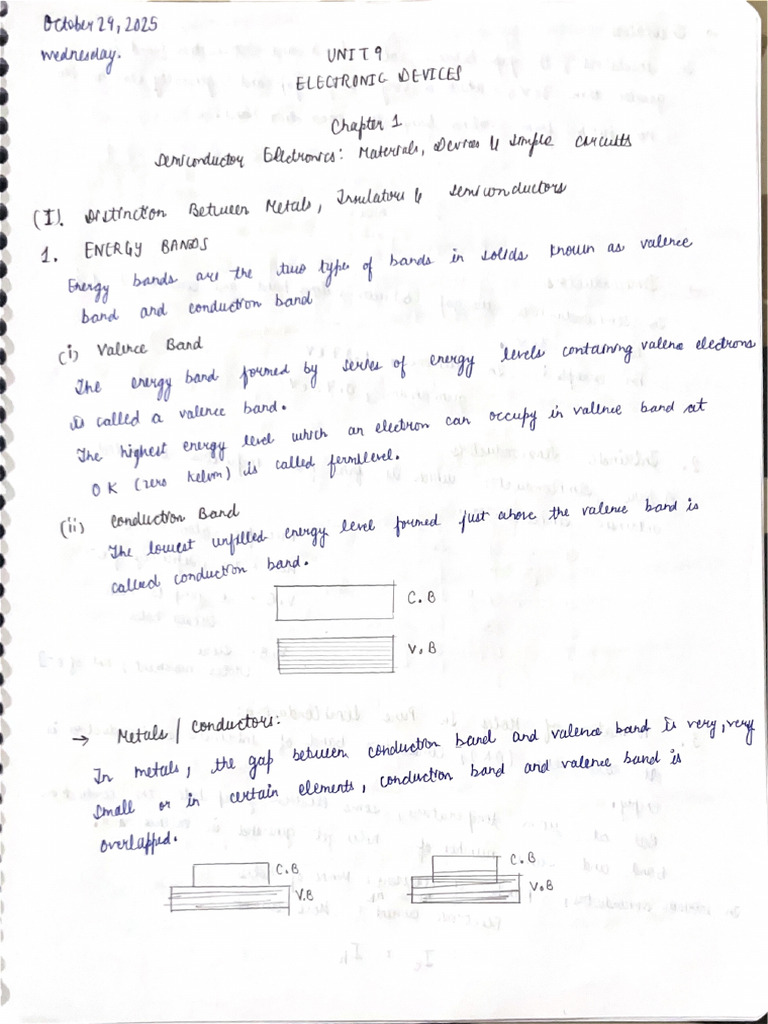 October 29, 2025
Wednesday.
UNIT 9
ELECTRONIC DEVICES
Chapter 1
Semiconductor Electronics: Materials, Devices & Simple Circuits
(I). Distinction Between Metals, Insulators & Semiconductors
1. ENERGY BANDS
Energy bands are the two types of bands in solids known as valence
band and conduction band
(i) Valence Band
The energy band formed by series of energy levels containing valence electrons
is called a valence band.
The highest energy level which an electron can occupy in valence band at
0 K (zero kelvin) is called fermilevel.
(ii) Conduction Band
The lowest unfilled energy level formed just above the valence band is
called conduction band.
C.B
V.B
→ Metals / Conductors:
In metals, the gap between conduction band and valence band is very, very
small or in certain elements, conduction band and valence band is
overlapped.
C.B
V.B
C.B
V.B